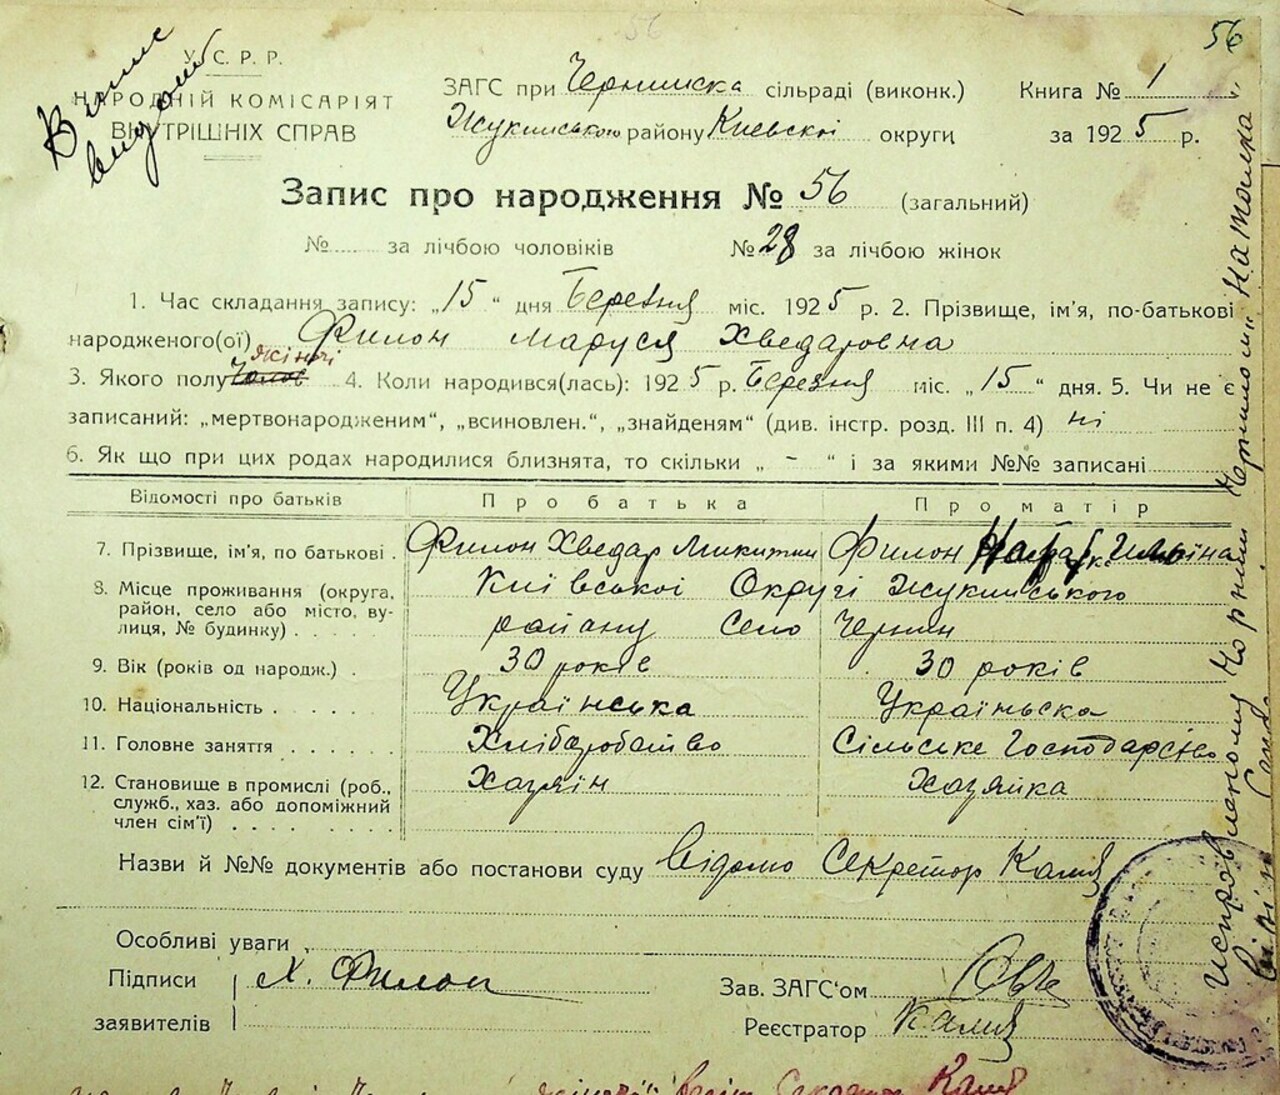 56
У. С. Р. Р.
НАРОДНІЙ КОМІСАРІЯТ
ВНУТРІШНІХ СПРАВ
ЗАГС при сільраді (виконк.)
Жукинського району Киевскоі округи
Книга № 1
за 1925 р.
Запис про народження № 56 (загальний)
№ за лічбою чоловіків № 28 за лічбою жінок
1. Час складання запису: „15“ дня Березня міс. 1925 р. 2. Прізвище, ім'я, по-батькові
народженого(ої) Филон Маруся Хведаровна
жіночі
3. Якого полу Чолов 4. Коли народився(лась): 1925 р. Березня міс. „15“ дня. 5. Чи не є
записаний: „мертвонародженим“, „всиновлен.“, „знайденям“ (див. інстр. розд. III п. 4) ні
6. Як що при цих родах народилися близнята, то скільки „ - “ і за якими №№ записані
Відомості про батьків Про батька Про матір
7. Прізвище, ім'я, по батькові . Филон Хведар Микитин Филон
8. Місце проживання (округа, Київськоі Округі Жукинського
район, село або місто, ву-
лиця, № будинку) . . . . району Село Чернин
9. Вік (років од народж.) . 30 років 30 років
10. Національність . . . . . Українська Україньска
11. Головне заняття . . . . . . Хлібаробство Сільське Господарство
12. Становище в промислі (роб., Хазяїн Хазяйка
служб., хаз. або допоміжний
член сім'ї) . . . . . . . .
Назви й №№ документів або постанови суду Відомо Секретор
Особливі уваги
Підписи Х. Филон
заявителів
Зав. ЗАГС'ом
Реєстратор